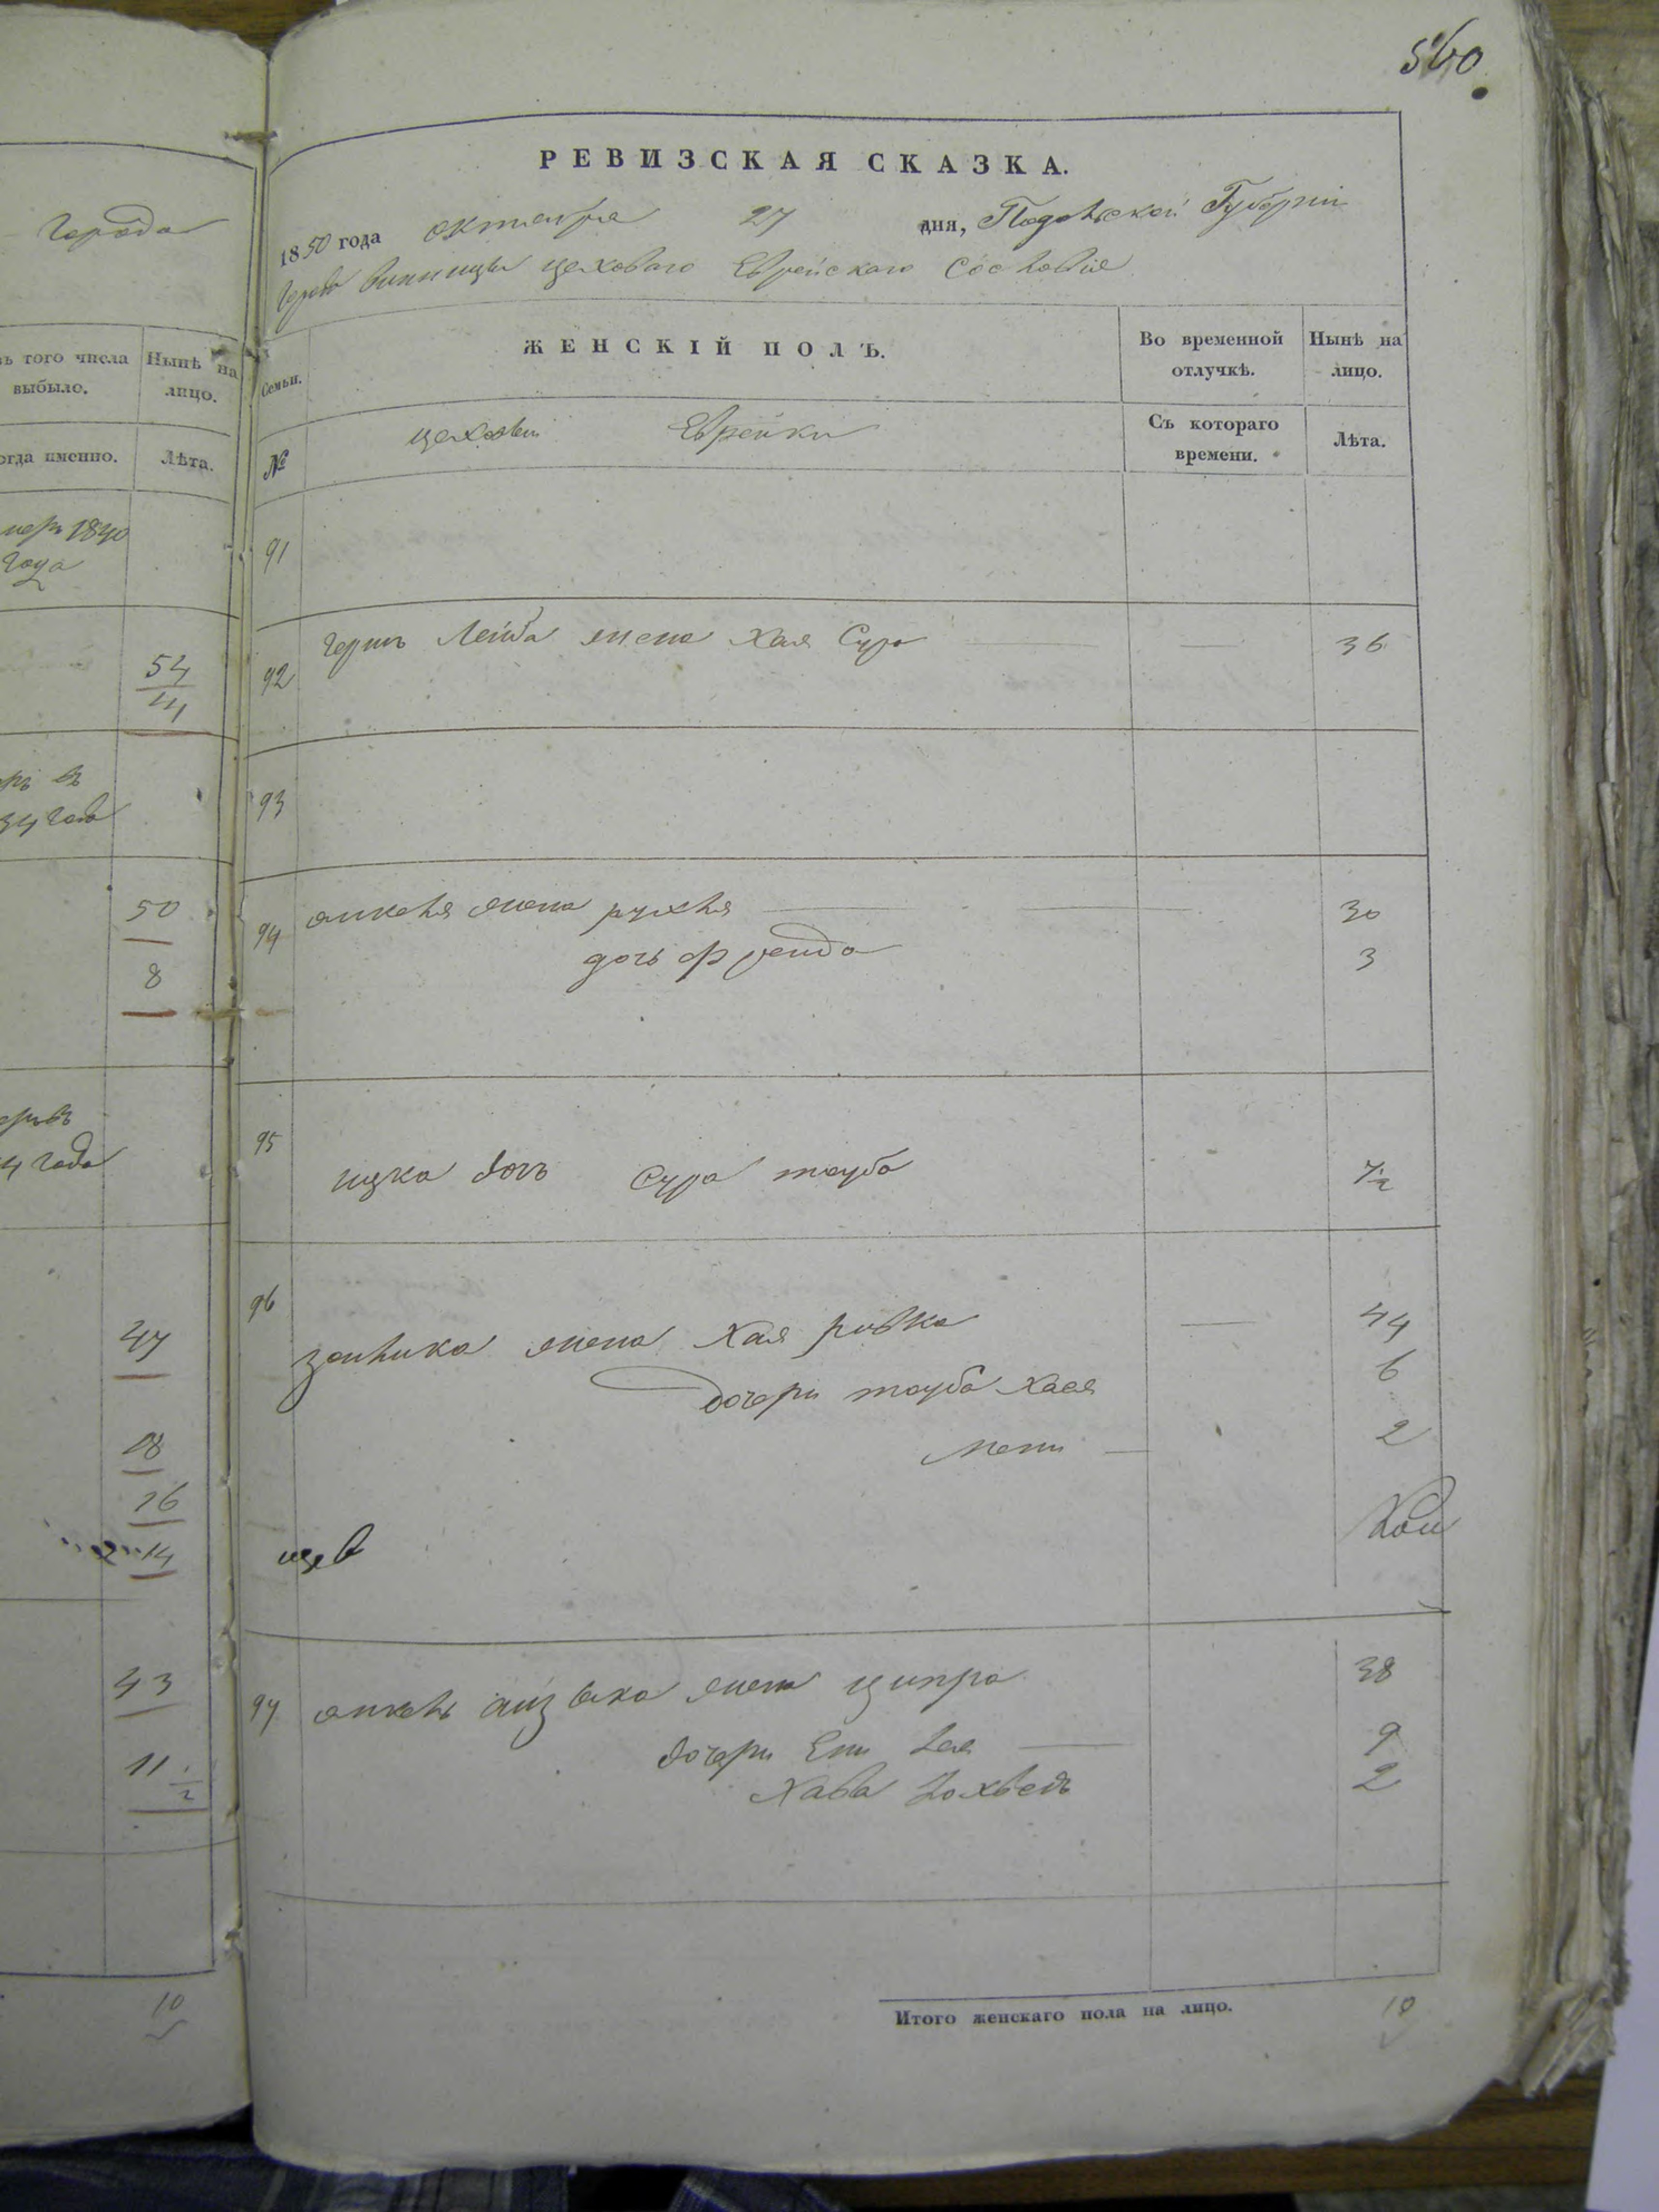 560
РЕВИЗСКАЯ СКАЗКА.
1850 года октября 27 дня, Подольской Губернiи
Города Винницы цеховаго Еврейскаго Сословiя
ЖЕНСКIЙ ПОЛЪ.
Семьи.
№
цеховыи Еврейки
Во временной отлучкѣ.
Съ котораго времени.
Нынѣ на лицо.
Лѣта.
91
92 Герша Лейба жена Хая Сура — — 36
93
94 жена рухля — 30
дочь Фрейда 3
95 ицка дочь Сура тауба ½
96 жена Хая ривка — 44
дочери тауба Хася 6
2
97 жена ципра 38
дочери Ени Лея — 9
Хава Iохведъ 2
Итого женскаго пола на лицо. 10
Города
ъ того числа выбыло.
Нынѣ на лицо.
огда именно.
Лѣта.
меръ 1840
Года
54
въ
34 года
50
8
4 года
47
18
16
14
43
11 ½
10